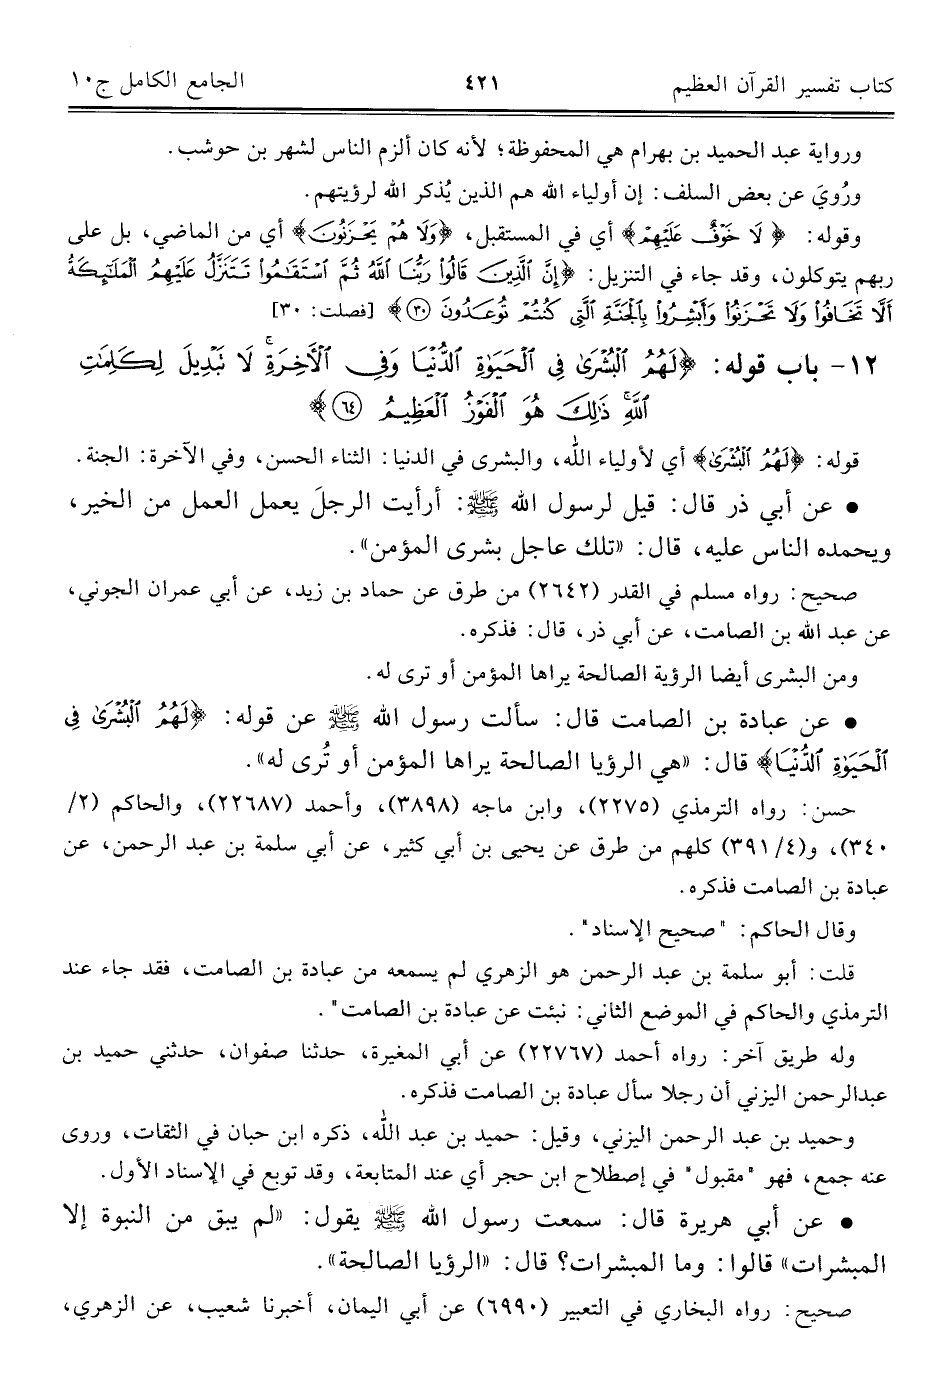 كتاب تفسير القرآن العظيم ٤٢١ الجامع الكامل ج١٠
ورواية عبد الحميد بن بهرام هي المحفوظة؛ لأنه كان ألزم الناس لشهر بن حوشب.
ورُويَ عن بعض السلف: إن أولياء الله هم الذين يُذكر الله لرؤيتهم.
وقوله: ﴿لَا خَوْفٌ عَلَيْهِمْ﴾ أي في المستقبل، ﴿وَلَا هُمْ يَحْزَنُونَ﴾ أي من الماضي، بل على
ربهم يتوكلون، وقد جاء في التنزيل: ﴿إِنَّ ٱلَّذِينَ قَالُوا۟ رَبُّنَا ٱللَّهُ ثُمَّ ٱسْتَقَـٰمُوا۟ تَتَنَزَّلُ عَلَيْهِمُ ٱلْمَلَـٰٓئِكَةُ
أَلَّا تَخَافُوا۟ وَلَا تَحْزَنُوا۟ وَأَبْشِرُوا۟ بِٱلْجَنَّةِ ٱلَّتِى كُنتُمْ تُوعَدُونَ ﴿٣٠﴾﴾ [فصلت: ٣٠]
١٢- باب قوله: ﴿لَهُمُ ٱلْبُشْرَىٰ فِى ٱلْحَيَوٰةِ ٱلدُّنْيَا وَفِى ٱلْـَٔاخِرَةِ ۚ لَا تَبْدِيلَ لِكَلِمَـٰتِ
ٱللَّهِ ۚ ذَٰلِكَ هُوَ ٱلْفَوْزُ ٱلْعَظِيمُ ﴿٦٤﴾﴾
قوله: ﴿لَهُمُ ٱلْبُشْرَىٰ﴾ أي لأولياء الله، والبشرى في الدنيا: الثناء الحسن، وفي الآخرة: الجنة.
• عن أبي ذر قال: قيل لرسول الله ﷺ: أرأيت الرجلَ يعمل العمل من الخير،
ويحمده الناس عليه، قال: «تلك عاجل بشرى المؤمن».
صحيح: رواه مسلم في القدر (٢٦٤٢) من طرق عن حماد بن زيد، عن أبي عمران الجوني،
عن عبد الله بن الصامت، عن أبي ذر، قال: فذكره.
ومن البشرى أيضا الرؤية الصالحة يراها المؤمن أو ترى له.
• عن عبادة بن الصامت قال: سألت رسول الله ﷺ عن قوله: ﴿لَهُمُ ٱلْبُشْرَىٰ فِى
ٱلْحَيَوٰةِ ٱلدُّنْيَا﴾ قال: «هي الرؤيا الصالحة يراها المؤمن أو تُرى له».
حسن: رواه الترمذي (٢٢٧٥)، وابن ماجه (٣٨٩٨)، وأحمد (٢٢٦٨٧)، والحاكم (٢/
٣٤٠)، و(٤/٣٩١) كلهم من طرق عن يحيى بن أبي كثير، عن أبي سلمة بن عبد الرحمن، عن
عبادة بن الصامت فذكره.
وقال الحاكم: "صحيح الإسناد".
قلت: أبو سلمة بن عبد الرحمن هو الزهري لم يسمعه من عبادة بن الصامت، فقد جاء عند
الترمذي والحاكم في الموضع الثاني: نبئت عن عبادة بن الصامت".
وله طريق آخر: رواه أحمد (٢٢٧٦٧) عن أبي المغيرة، حدثنا صفوان، حدثني حميد بن
عبدالرحمن اليزني أن رجلا سأل عبادة بن الصامت فذكره.
وحميد بن عبد الرحمن اليزني، وقيل: حميد بن عبد الله، ذكره ابن حبان في الثقات، وروى
عنه جمع، فهو "مقبول" في إصطلاح ابن حجر أي عند المتابعة، وقد توبع في الإسناد الأول.
• عن أبي هريرة قال: سمعت رسول الله ﷺ يقول: «لم يبق من النبوة إلا
المبشرات» قالوا: وما المبشرات؟ قال: «الرؤيا الصالحة».
صحيح: رواه البخاري في التعبير (٦٩٩٠) عن أبي اليمان، أخبرنا شعيب، عن الزهري،